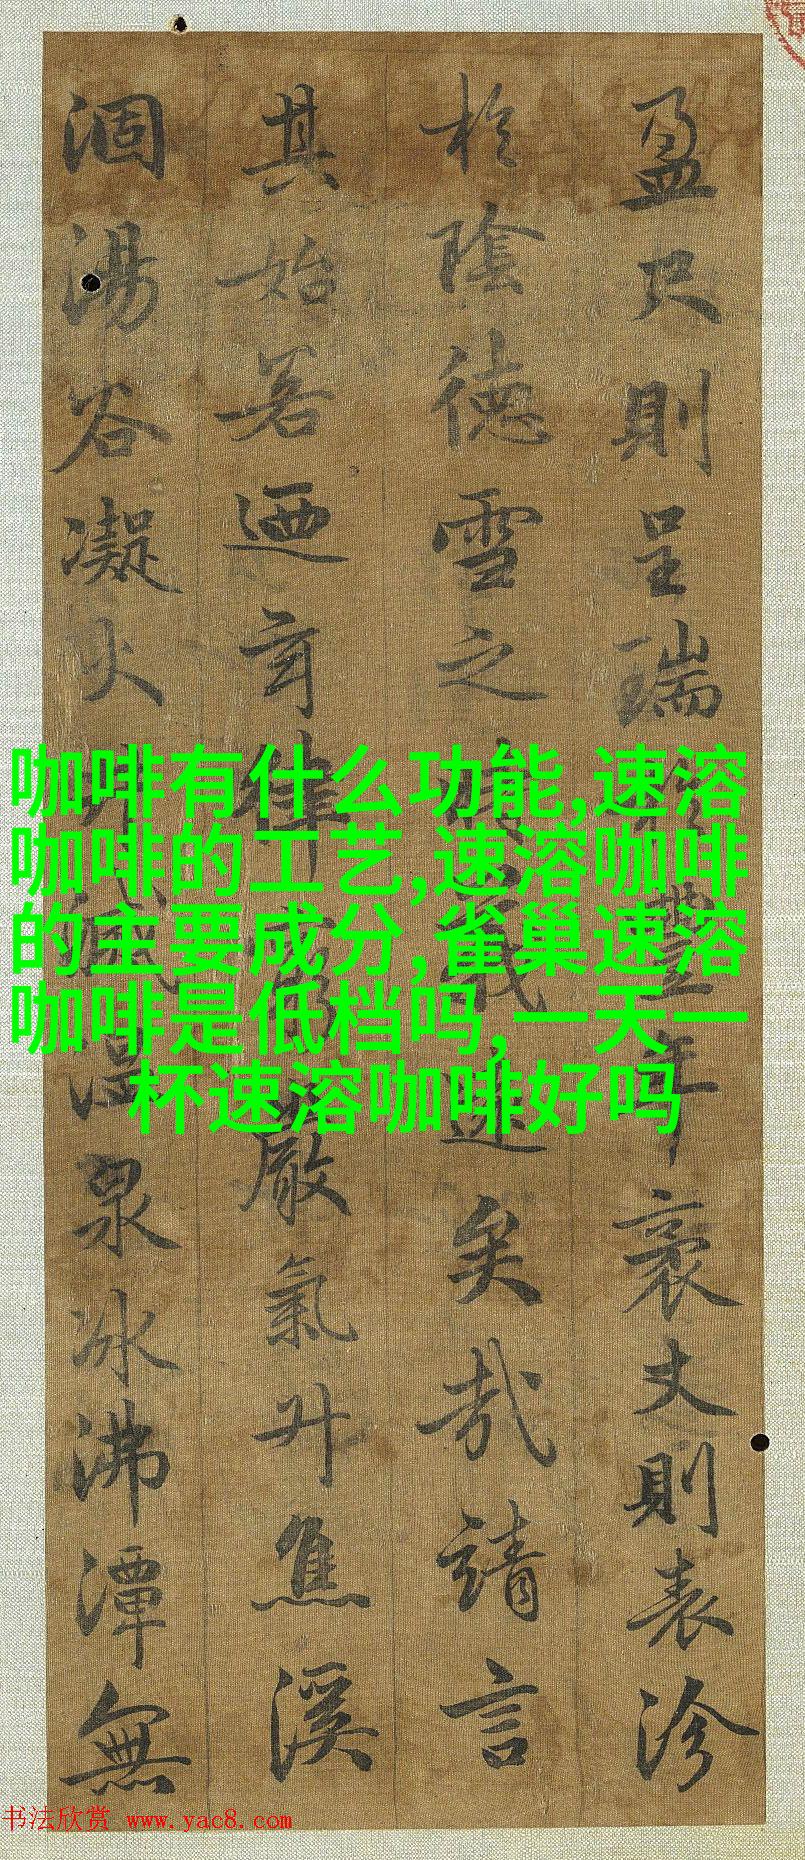 盈尺則呈瑞於豐年袤丈則表沴
於陰德雪之義遠矣哉請言
其始若迺玄律窮嚴氣升焦溪
涸湯谷凝火井滅温泉冰沸潭無
咖啡有什么功能,速溶
咖啡的工艺,速溶咖啡
的主要成分,雀巢速溶
咖啡是低档吗,一天一
杯速溶咖啡好吗
书法欣赏 www.yac8.com